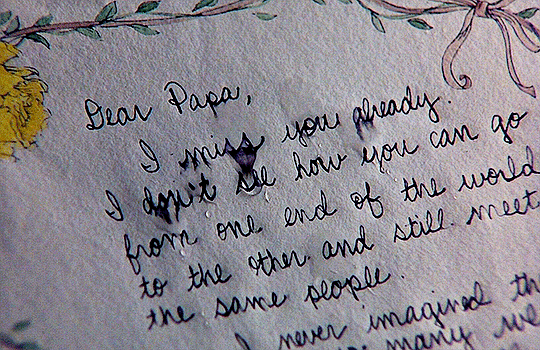 Dear Papa,
I miss you already.
I don't see how you can go
from one end of the world
to the other and still meet
the same people.
I never imagined
many we